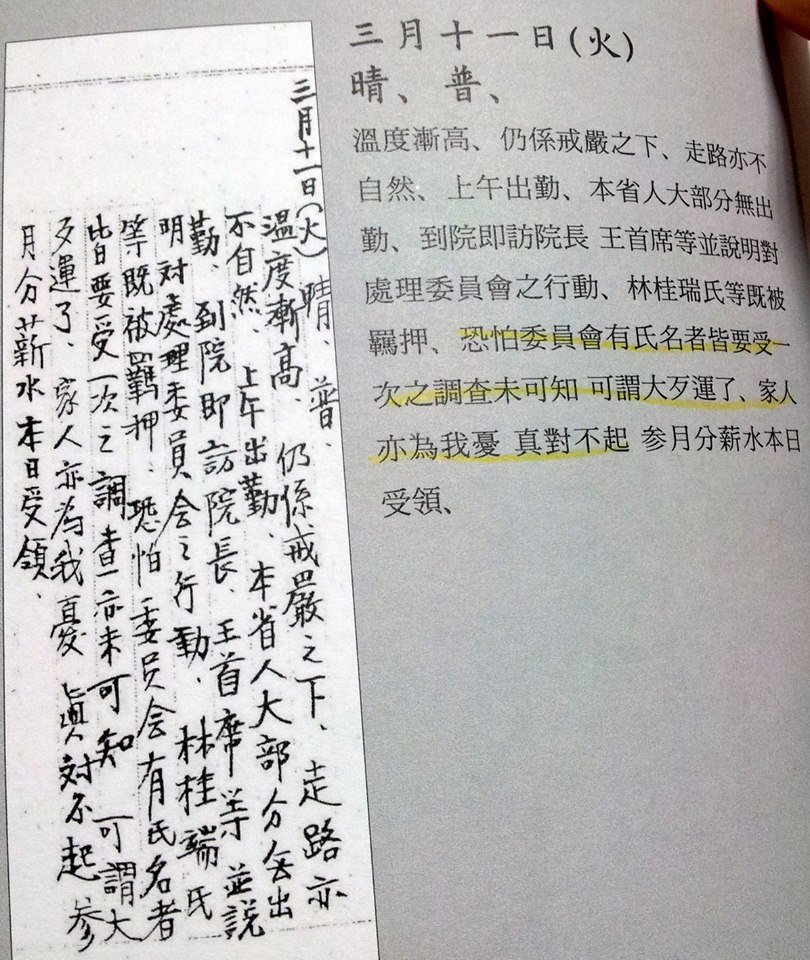 三月十一日(火) 晴、普、
溫度漸高、仍係戒嚴之下、走路亦
不自然、上午出勤、本省人大部分無出
勤、到院即訪院長、王首席等並說
明対處理委員会之行動、林桂端氏
等既被羈押、恐怕委員会有氏名者
皆要受一次之調查亦未可知 可謂大
歹運了、家人亦為我憂 真対不起 参
月分薪水本日受領、
三月十一日(火)
晴、普、
溫度漸高、仍係戒嚴之下、走路亦不
自然、上午出勤、本省人大部分無出
勤、到院即訪院長 王首席等並說明對
處理委員會之行動、林桂瑞氏等既被
羈押、恐怕委員會有氏名者皆要受一
次之調查未可知 可謂大歹運了、家人
亦為我憂 真對不起 参月分薪水本日
受領、